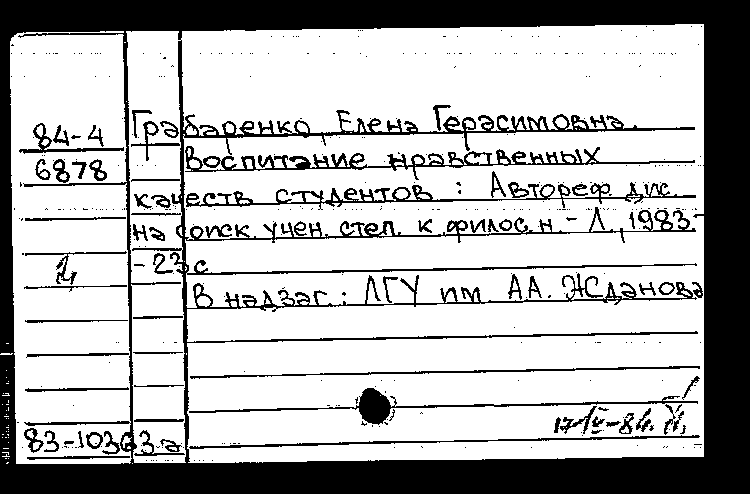 84-4
6878
Грабаренко, Елена Герасимовна.
Воспитание нравственных
качеств студентов : Автореф. дис.
на соиск. учен. степ. к. филос. н. - Л., 1983.-
- 23 с
В надзаг. : ЛГУ им. А.А. Жданова
17-IV-84.
83-10363а